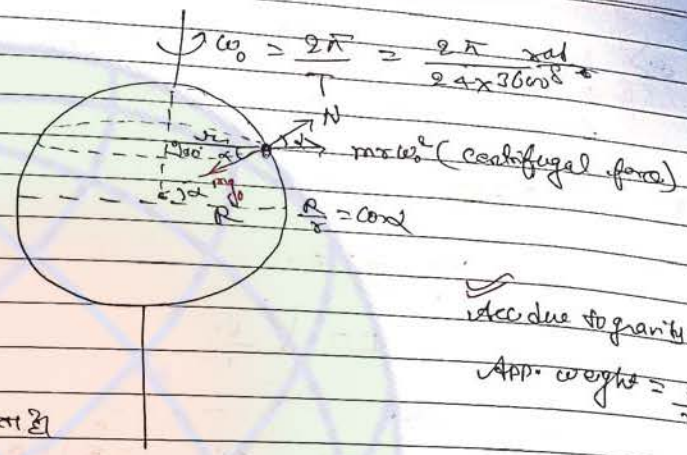 ω₀ = 2π/T = 2π rad/24×3600 s
N
r
90-α
α
mrω₀² (centrifugal force)
mg₀
α
R
R/r = cosα
Acc due to gravity
App. weight =